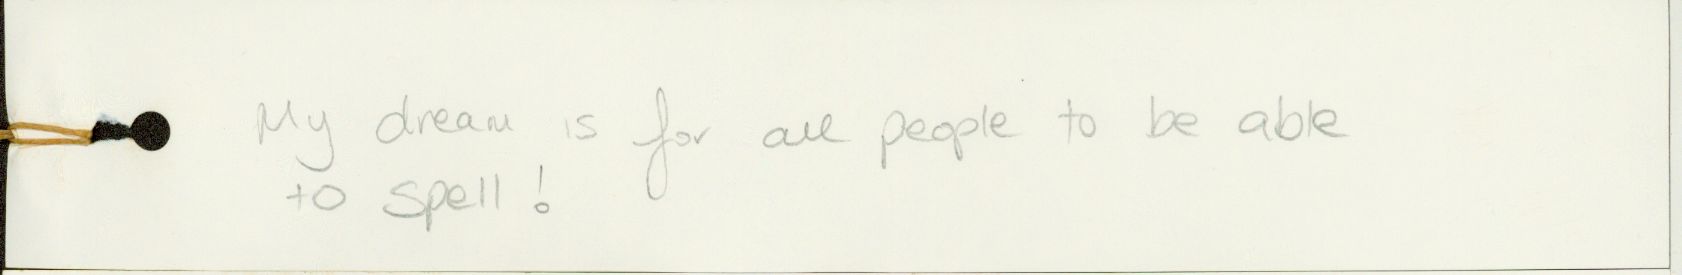 My dream is for all people to be able
to spell!